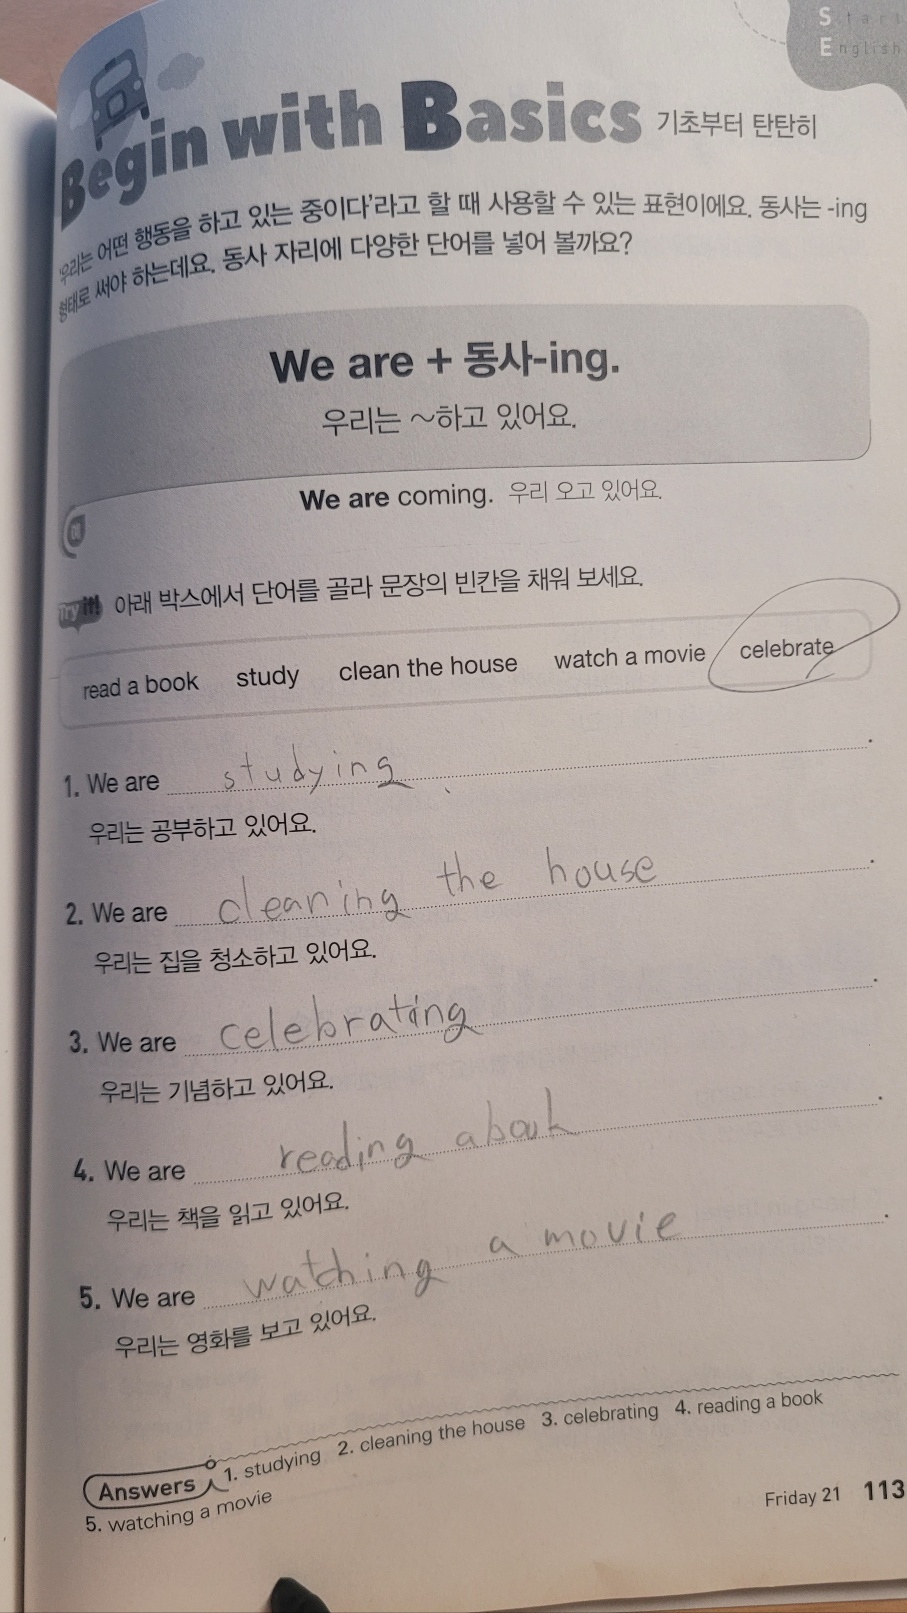 Start
English
Begin with Basics 기초부터 탄탄히
'우리는 어떤 행동을 하고 있는 중이다'라고 할 때 사용할 수 있는 표현이에요. 동사는 -ing
형태로 써야 하는데요. 동사 자리에 다양한 단어를 넣어 볼까요?
We are + 동사-ing.
우리는 ～하고 있어요.
예
We are coming. 우리 오고 있어요.
Try it! 아래 박스에서 단어를 골라 문장의 빈칸을 채워 보세요.
read a book study clean the house watch a movie celebrate
1. We are studying .
우리는 공부하고 있어요.
2. We are cleaning the house .
우리는 집을 청소하고 있어요.
3. We are celebrating .
우리는 기념하고 있어요.
4. We are reading a book .
우리는 책을 읽고 있어요.
5. We are watching a movie .
우리는 영화를 보고 있어요.
Answers 1. studying 2. cleaning the house 3. celebrating 4. reading a book
5. watching a movie
Friday 21 113